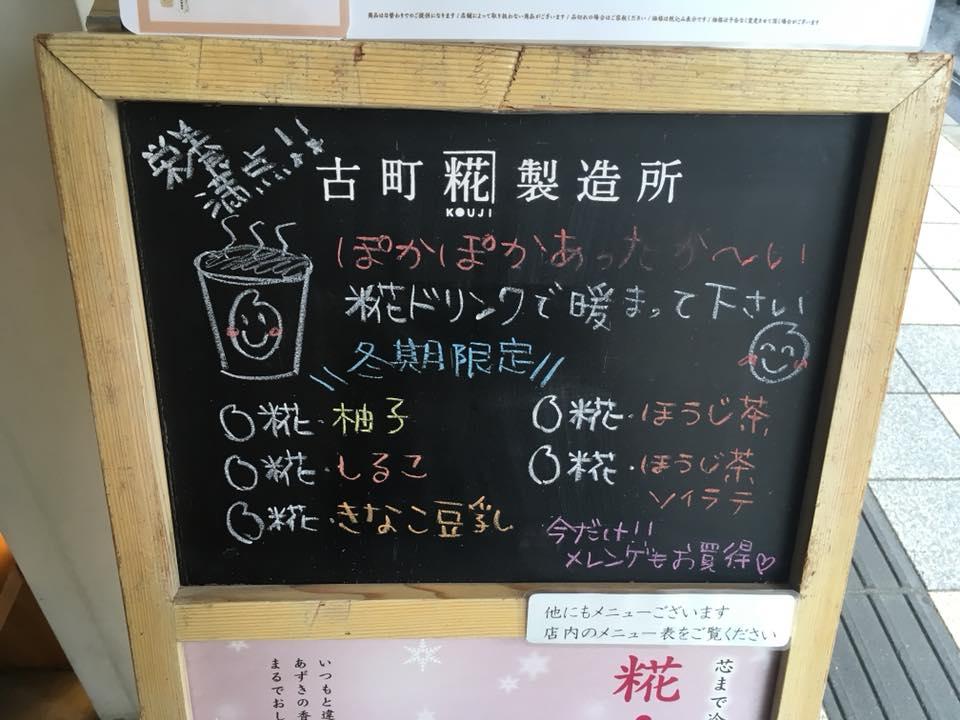 商品はお替わりでのご提供になります / 店舗によって取り扱わない商品がございます / 品切れの場合はご容赦ください / 価格は税込み表示です / 価格は予告なく変更させて頂く場合がございます
栄養満点!!
古町糀製造所
KOUJI
ぽかぽかあったか〜い
糀ドリンクで暖まって下さい
\\冬期限定//
糀・柚子
糀・しるこ
糀・きなこ豆乳
糀・ほうじ茶
糀・ほうじ茶
ソイラテ
今だけ!!
メレンゲもお買得♡
他にもメニューございます
店内のメニュー表をご覧ください
芯まで冷
糀
いつもと違
あずきの香
まるでおし